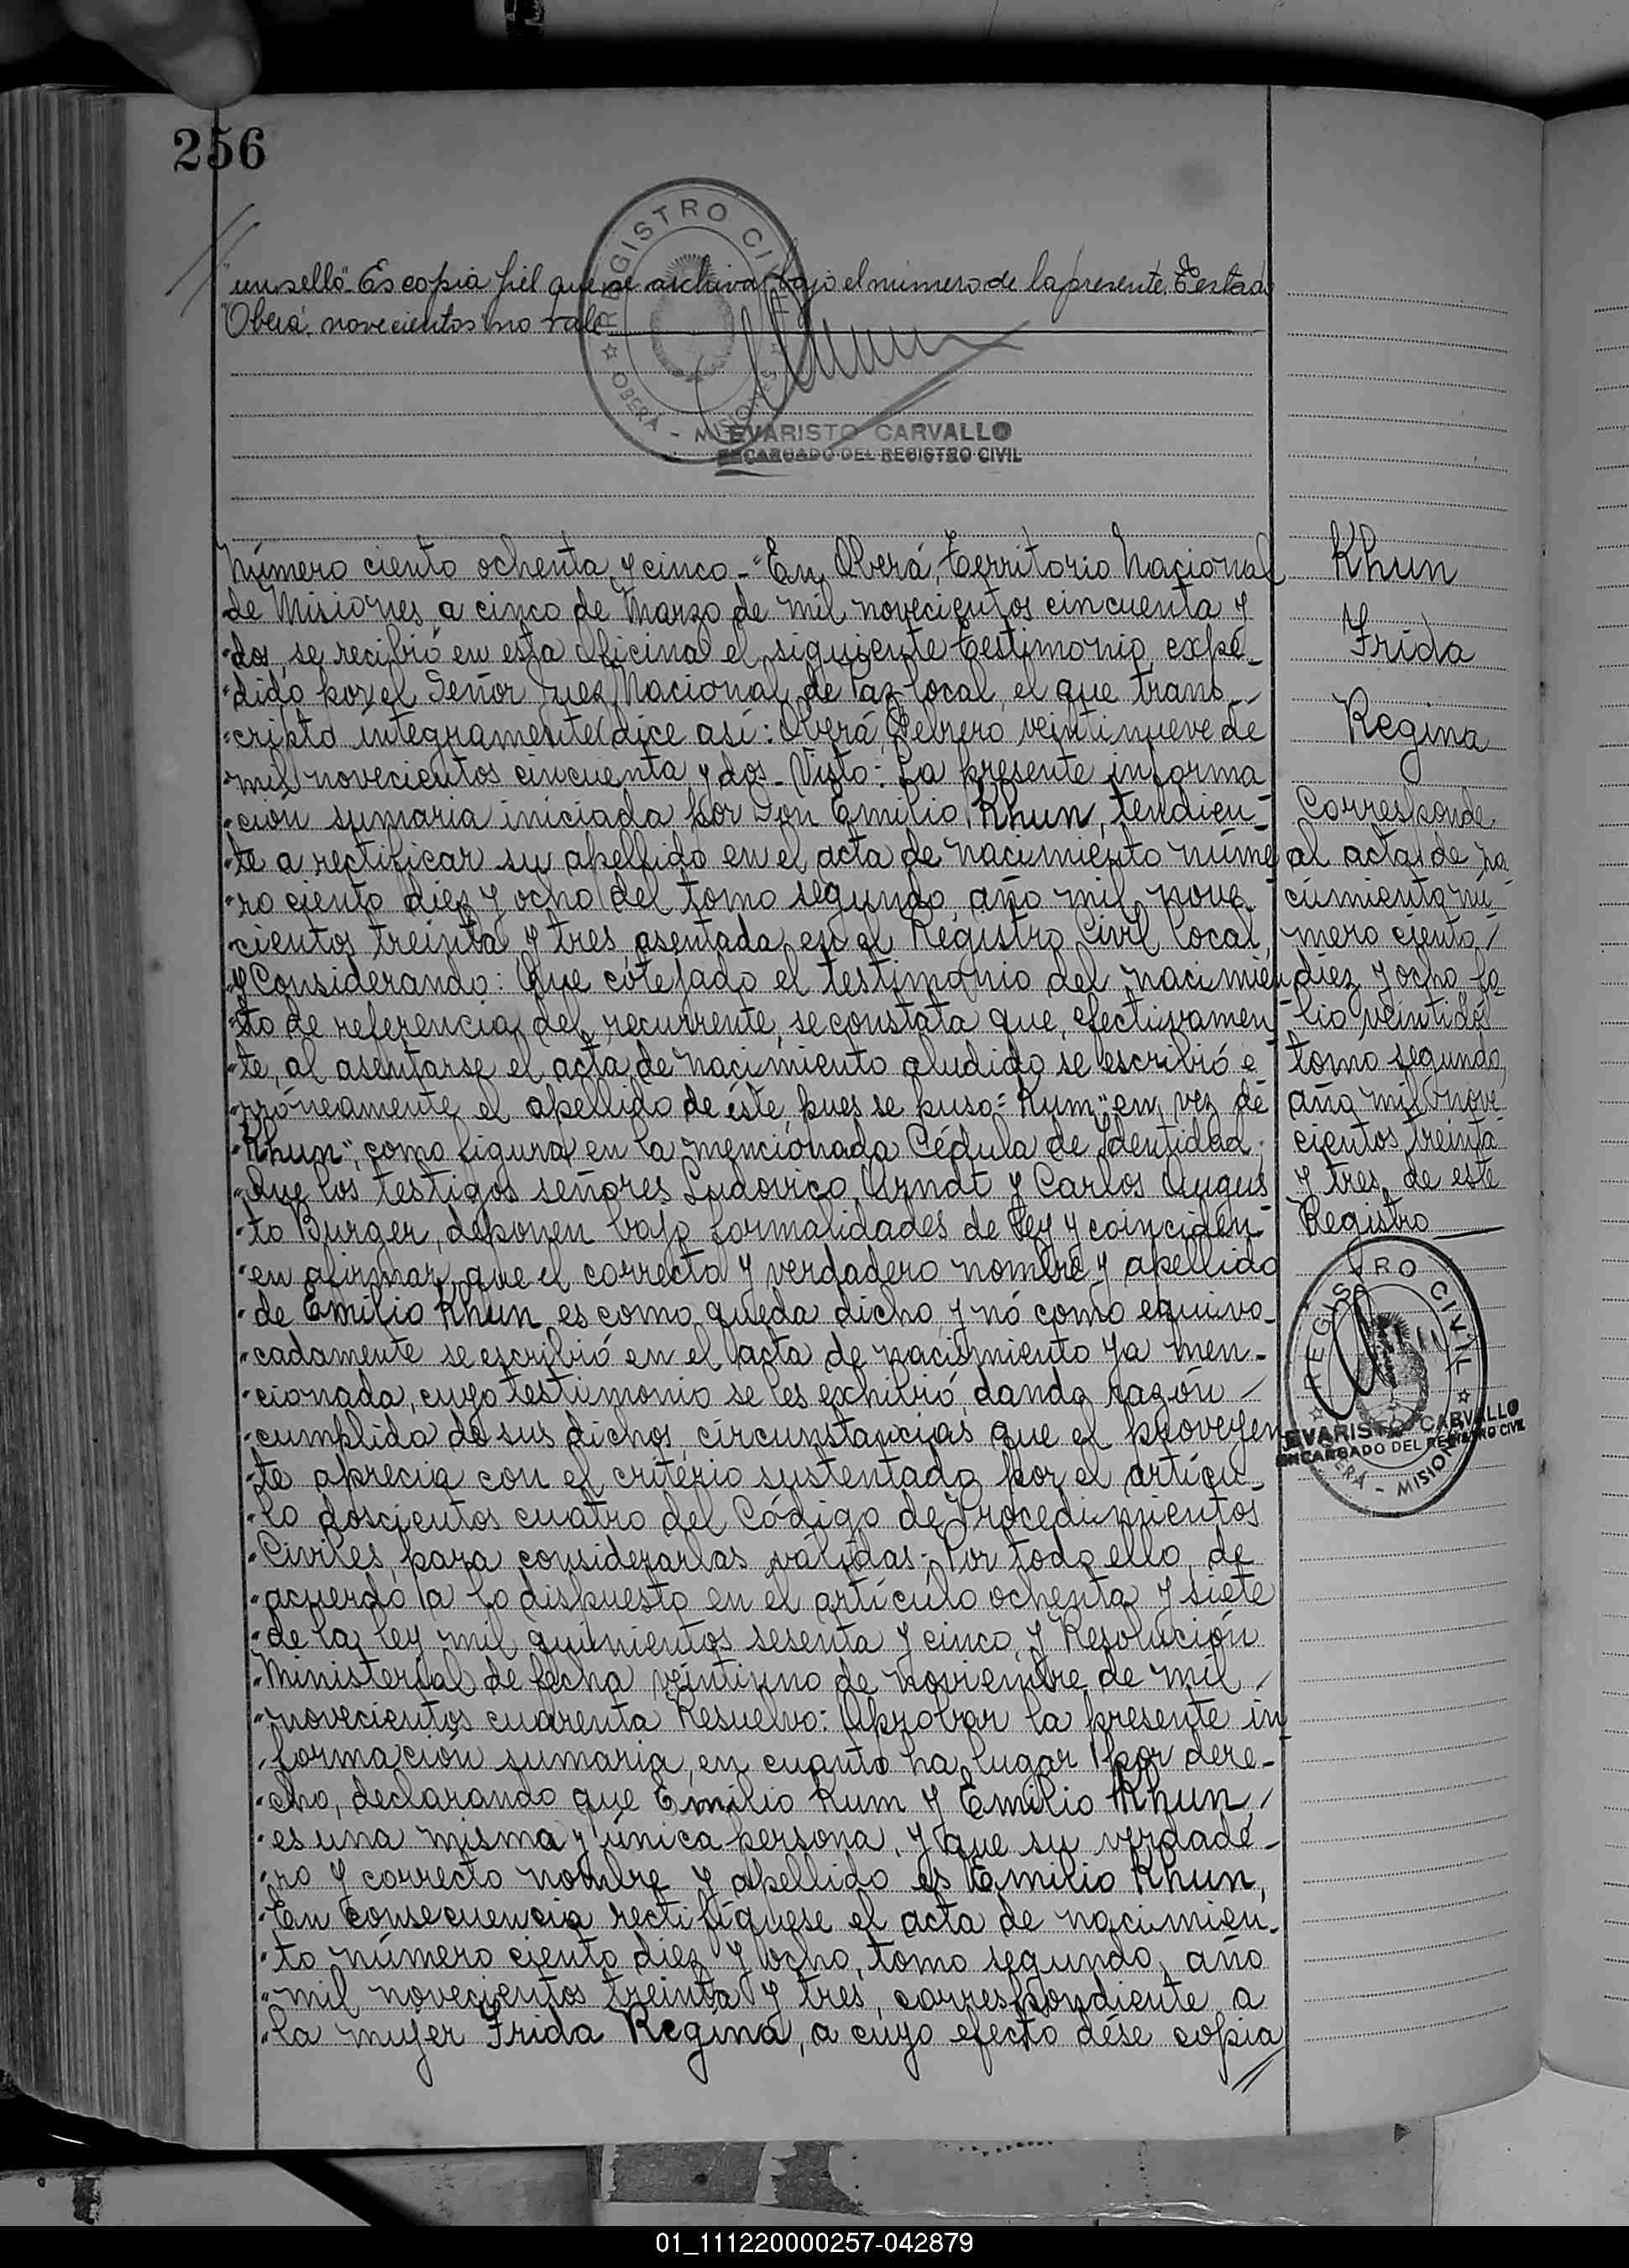 256
"un sello". Es copia fiel que se archiva bajo el número de la presente. Testado
"Oberá, novecientos" no vale
REGISTRO CIVIL
OBERÁ - MISIONES
EVARISTO CARVALLO
ENCARGADO DEL REGISTRO CIVIL
Número ciento ochenta y cinco.- "En Oberá, Territorio Nacional
de Misiones, a cinco de Marzo de mil novecientos cincuenta y
"dos, se recibió en esta Oficina el siguiente testimonio expe-
"dido por el Señor Juez Nacional de Paz local, el que trans-
"cripto íntegramente dice así: Oberá, Febrero veintinueve de
"mil novecientos cincuenta y dos.- Visto: La presente informa
"ción sumaria iniciada por Don Emilio Khun, tendien-
"te a rectificar su apellido en el acta de nacimiento núme
"ro ciento diez y ocho del tomo segundo, año mil nove-
"cientos treinta y tres, asentada en el Registro Civil local,
"y Considerando: Que cotejado el testimonio del nacimien
"to de referencia del recurrente, se constata que, efectivamen
"te, al asentarse el acta de nacimiento aludido se escribió e-
"rróneamente el apellido de éste, pues se puso= Kum" en vez de
"Khun", como figura en la mencionada Cédula de Identidad;
"Que los testigos señores Ludovico Arndt y Carlos Augus
"to Burger, deponen bajo formalidades de ley y coinciden
"en afirmar que el correcto y verdadero nombre y apellido
"de Emilio Khun es como queda dicho y nó como equivo-
"cadamente se escribió en el acta de nacimiento ya men-
"cionada, cuyo testimonio se les exhibió, dando razón
"cumplida de sus dichos, circunstancias que el proveyen
"te aprecia con el criterio sustentado por el artícu-
"lo doscientos cuatro del Código de Procedimientos
"Civiles, para considerarlas válidas.- Por todo ello, de
"acuerdo a lo dispuesto en el artículo ochenta y siete
"de la ley mil quinientos sesenta y cinco y Resolución
"Ministerial de fecha veintiuno de noviembre de mil
"novecientos cuarenta Resuelvo: Aprobar la presente in
"formación sumaria, en cuanto ha lugar por dere-
"cho, declarando que Emilio Kum y Emilio Khun,
"es una misma y única persona, y que su verdade-
"ro y correcto nombre y apellido es Emilio Khun,
"En consecuencia rectifíquese el acta de nacimien-
"to número ciento diez y ocho, tomo segundo, año
"mil novecientos treinta y tres, correspondiente a
"la mujer Frida Regina, a cuyo efecto dése copia
Khun
Frida
Regina
Corresponde
al acta de na
cimiento nú
mero ciento
diez y ocho fo-
lio veintidós
tomo segundo,
año mil nove
cientos treinta
y tres, de este
Registro
REGISTRO CIVIL
OBERÁ - MISIONES
EVARISTO CARVALLO
ENCARGADO DEL REGISTRO CIVIL
01_111220000257-042879